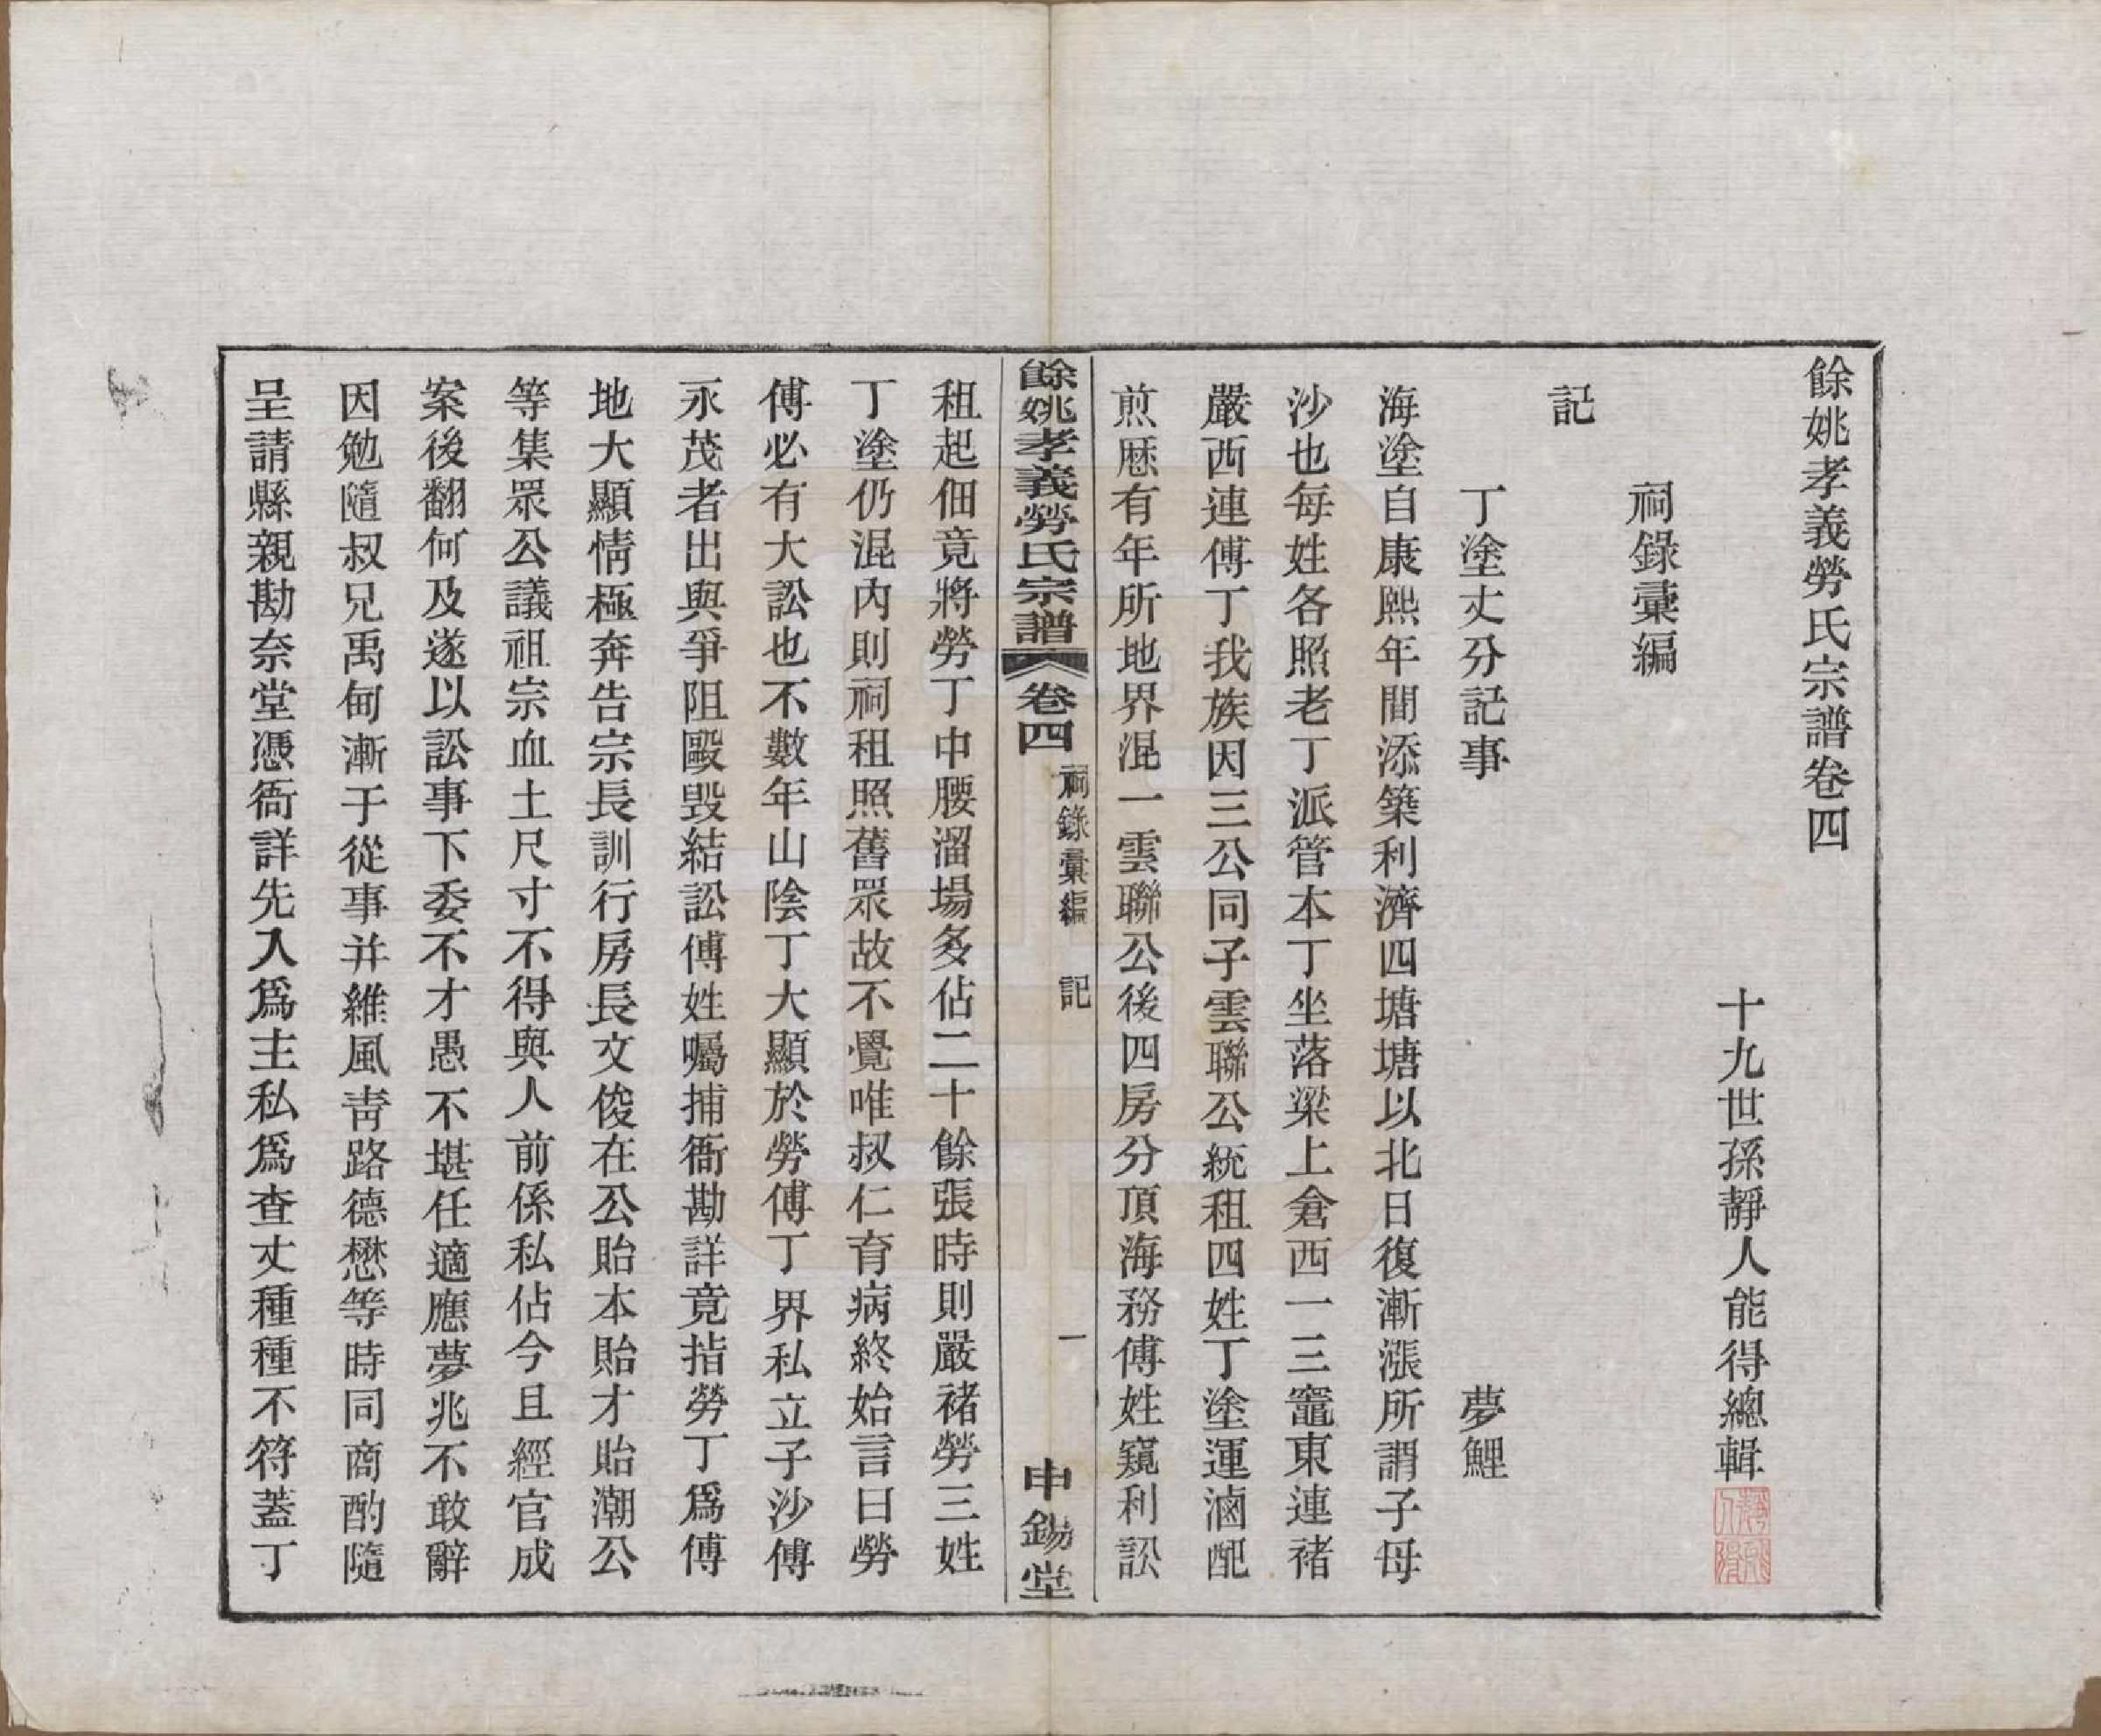 餘姚孝義勞氏宗譜卷四
十九世孫靜人能得總輯
祠錄彙編
記
丁塗丈分記事　夢鯉
海塗自康熙年間添築利濟四塘塘以北日復漸漲所謂子母
沙也每姓各照老丁派管本丁坐落梁上倉西一三竈東連褚
嚴西連傅丁我族因三公同子雲聯公統租四姓丁塗運滷配
煎歷有年所地界混一雲聯公後四房分頂海務傅姓窺利訟
餘姚孝義勞氏宗譜　卷四　祠錄彙編　記　一　申錫堂
租起佃竟將勞丁中腰溜場多佔二十餘張時則嚴褚勞三姓
丁塗仍混內則祠租照舊眾故不覺唯叔仁育病終始言曰勞
傅必有大訟也不數年山陰丁大顯於勞傅丁界私立子沙傅
永茂者出與爭阻毆毀結訟傅姓囑捕衙勘詳竟指勞丁爲傅
地大顯情極奔告宗長訓行房長文俊在公貽本貽才貽潮公
等集眾公議祖宗血土尺寸不得與人前係私佔今且經官成
案後翻何及遂以訟事下委不才愚不堪任適應夢兆不敢辭
因勉隨叔兄禹甸漸于從事并維風靑路德懋等時同商酌隨
呈請縣親勘奈堂憑衙詳先入爲主私爲查丈種種不符蓋丁